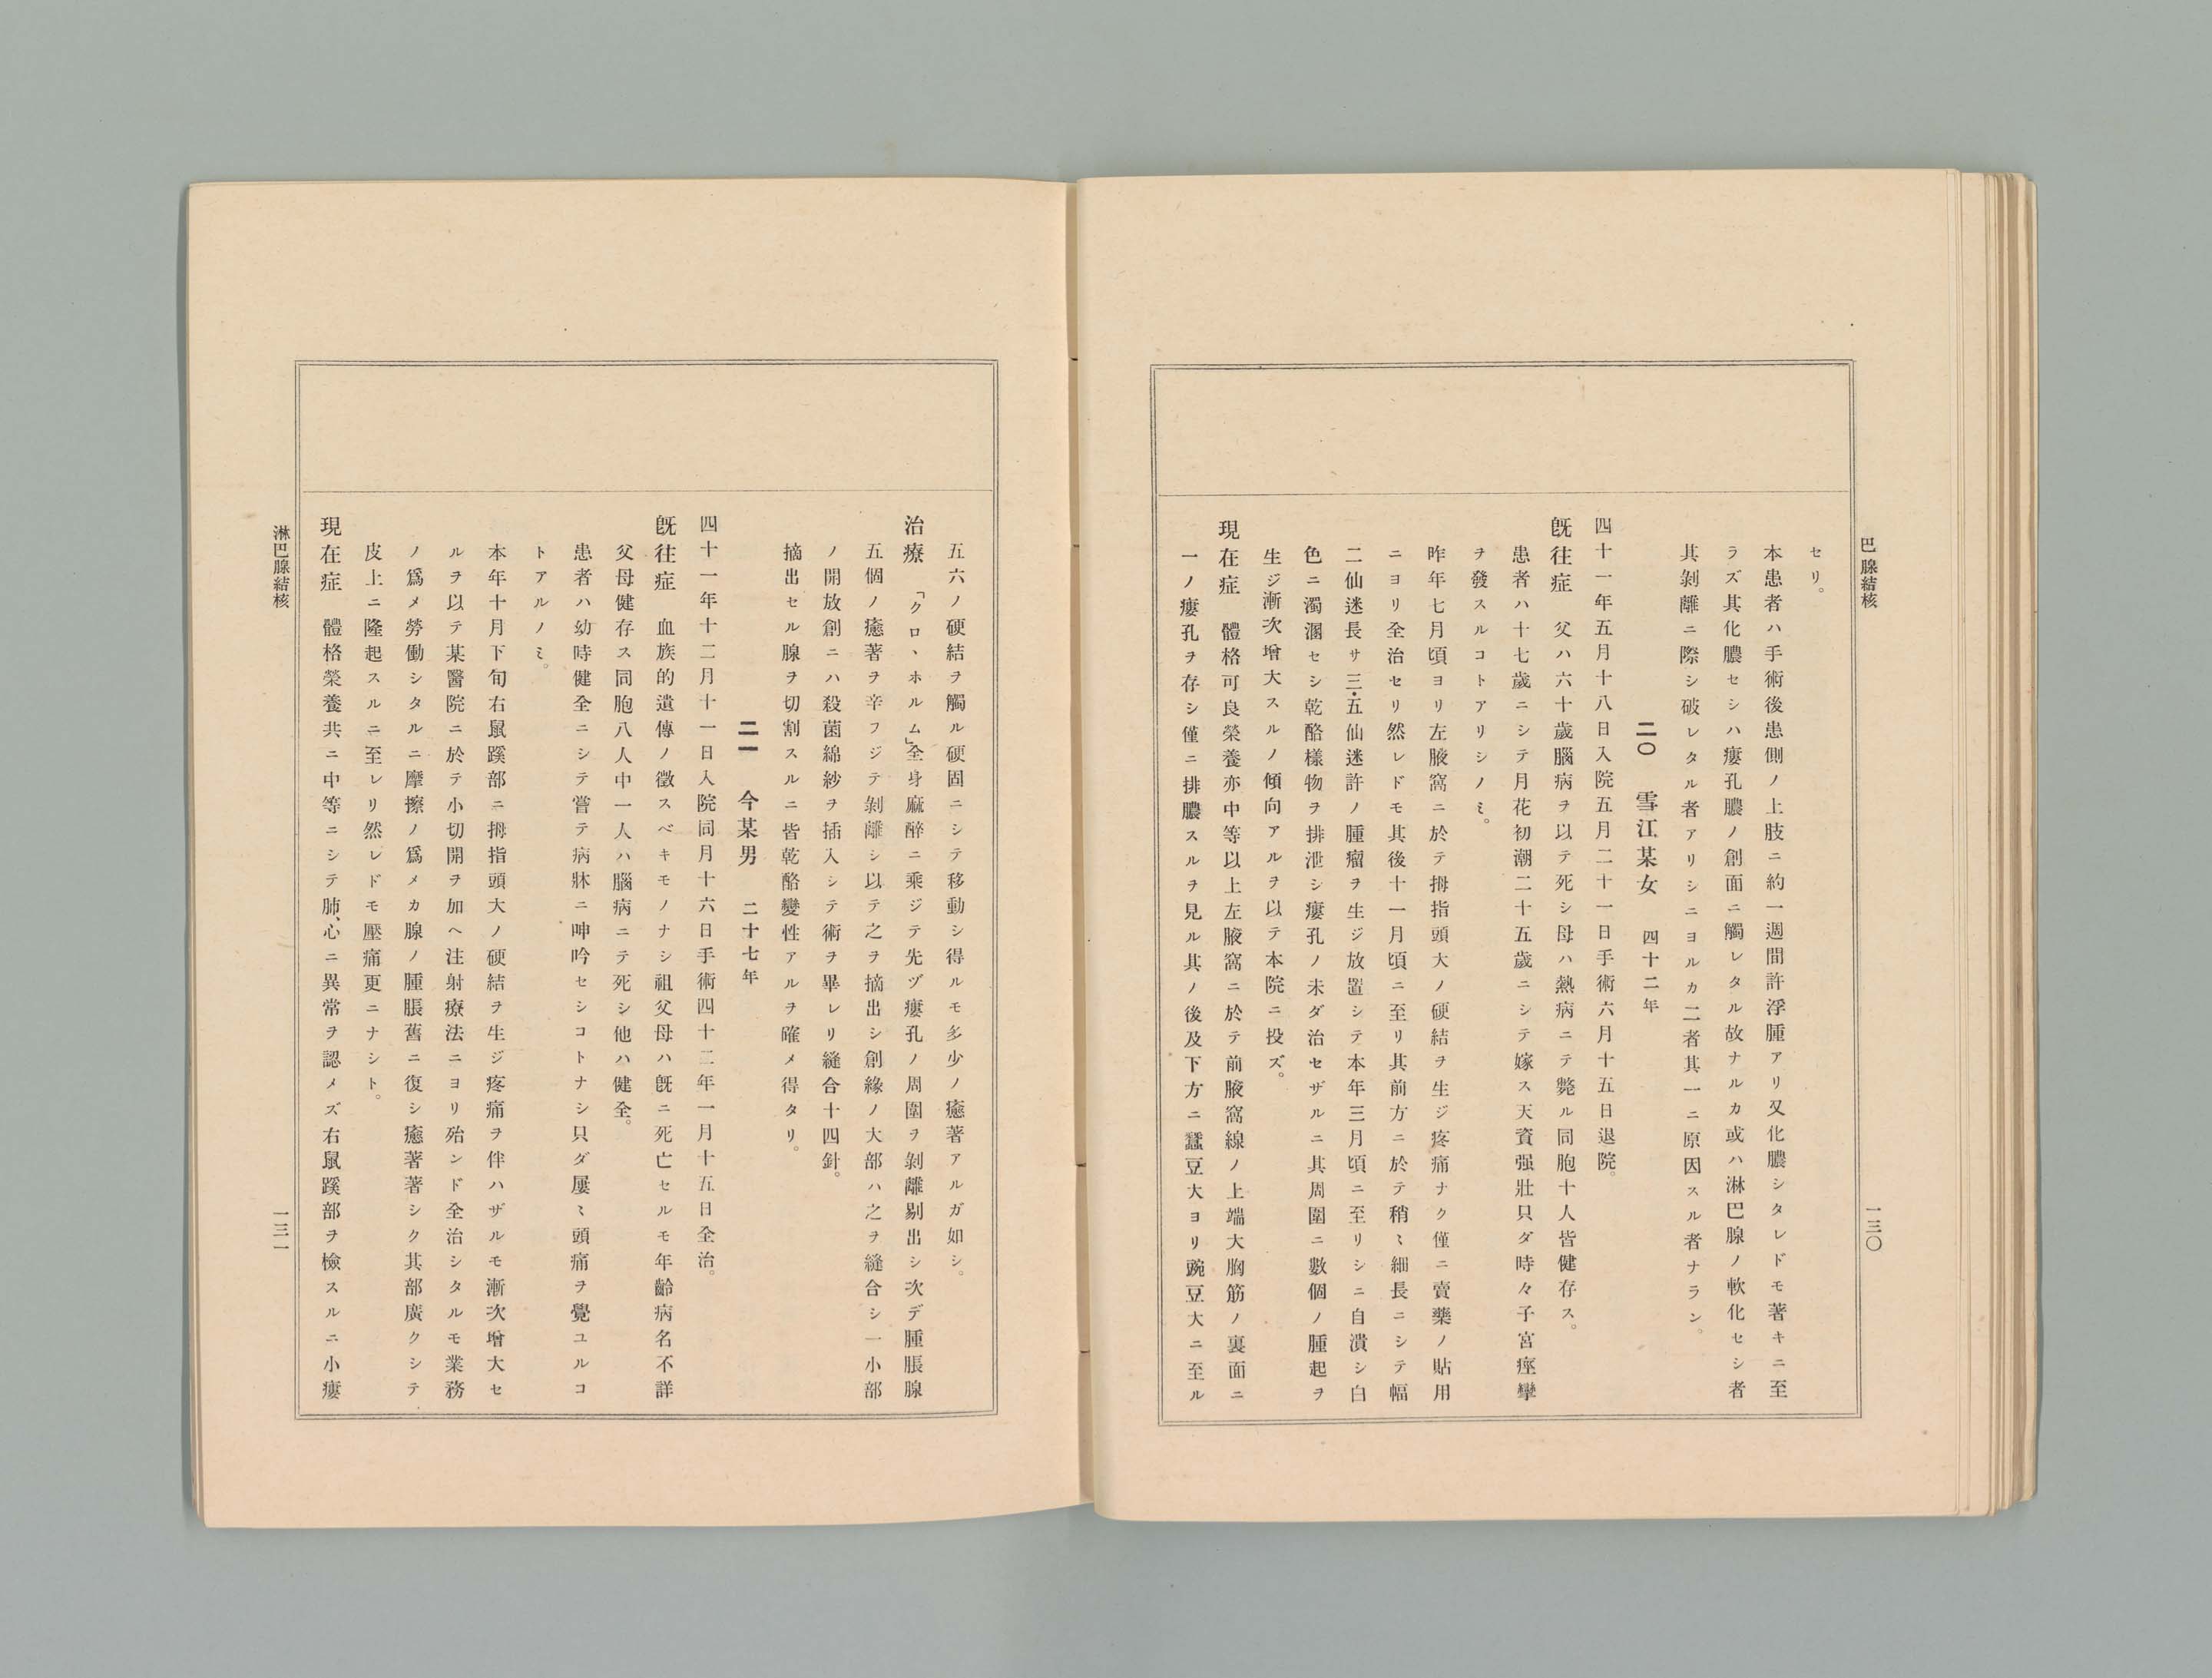 巴腺結核
一三〇
セリ。
本患者ハ手術後患側ノ上肢ニ約一週間許浮腫アリ又化膿シタレドモ著キニ至
ラズ其化膿セシハ瘻孔膿ノ創面ニ觸レタル故ナルカ或ハ淋巴腺ノ軟化セシ者
其剝離ニ際シ破レタル者アリシニヨルカ二者其一ニ原因スル者ナラン。
二〇 雪江某女 四十二年
四十一年五月十八日入院五月二十一日手術六月十五日退院。
既往症 父ハ六十歲腦病ヲ以テ死シ母ハ熱病ニテ斃ル同胞十人皆健存ス。
患者ハ十七歲ニシテ月花初潮二十五歲ニシテ嫁ス天資强壯只ダ時々子宮痙攣
ヲ發スルコトアリシノミ。
昨年七月頃ヨリ左腋窩ニ於テ拇指頭大ノ硬結ヲ生ジ疼痛ナク僅ニ賣藥ノ貼用
ニヨリ全治セリ然レドモ其後十一月頃ニ至リ其前方ニ於テ稍〻細長ニシテ幅
二仙迷長サ三・五仙迷許ノ腫瘤ヲ生ジ放置シテ本年三月頃ニ至リシニ自潰シ白
色ニ濁溷セシ乾酪樣物ヲ排泄シ瘻孔ノ未ダ治セザルニ其周圍ニ數個ノ腫起ヲ
生ジ漸次增大スルノ傾向アルヲ以テ本院ニ投ズ。
現在症 體格可良榮養亦中等以上左腋窩ニ於テ前腋窩線ノ上端大胸筋ノ裏面ニ
一ノ瘻孔ヲ存シ僅ニ排膿スルヲ見ル其ノ後及下方ニ蠶豆大ヨリ豌豆大ニ至ル
五六ノ硬結ヲ觸ル硬固ニシテ移動シ得ルモ多少ノ癒著アルガ如シ。
治療 「クロヽホルム」全身麻醉ニ乘ジテ先ヅ瘻孔ノ周圍ヲ剝離剔出シ次デ腫脹腺
五個ノ癒著ヲ辛フジテ剝離シ以テ之ヲ摘出シ創緣ノ大部ハ之ヲ縫合シ一小部
ノ開放創ニハ殺菌綿紗ヲ插入シテ術ヲ畢レリ縫合十四針。
摘出セル腺ヲ切割スルニ皆乾酪變性アルヲ確メ得タリ。
二一 今某男 二十七年
四十一年十二月十一日入院同月十六日手術四十二年一月十五日全治。
既往症 血族的遺傳ノ徵スベキモノナシ祖父母ハ既ニ死亡セルモ年齡病名不詳
父母健存ス同胞八人中一人ハ腦病ニテ死シ他ハ健全。
患者ハ幼時健全ニシテ嘗テ病牀ニ呻吟セシコトナシ只ダ屢〻頭痛ヲ覺ユルコ
トアルノミ。
本年十月下旬右鼠蹊部ニ拇指頭大ノ硬結ヲ生ジ疼痛ヲ伴ハザルモ漸次增大セ
ルヲ以テ某醫院ニ於テ小切開ヲ加ヘ注射療法ニヨリ殆ンド全治シタルモ業務
ノ爲メ勞働シタルニ摩擦ノ爲メカ腺ノ腫脹舊ニ復シ癒著著シク其部廣クシテ
皮上ニ隆起スルニ至レリ然レドモ壓痛更ニナシト。
現在症 體格榮養共ニ中等ニシテ肺、心ニ異常ヲ認メズ右鼠蹊部ヲ檢スルニ小瘻
淋巴腺結核
一三一